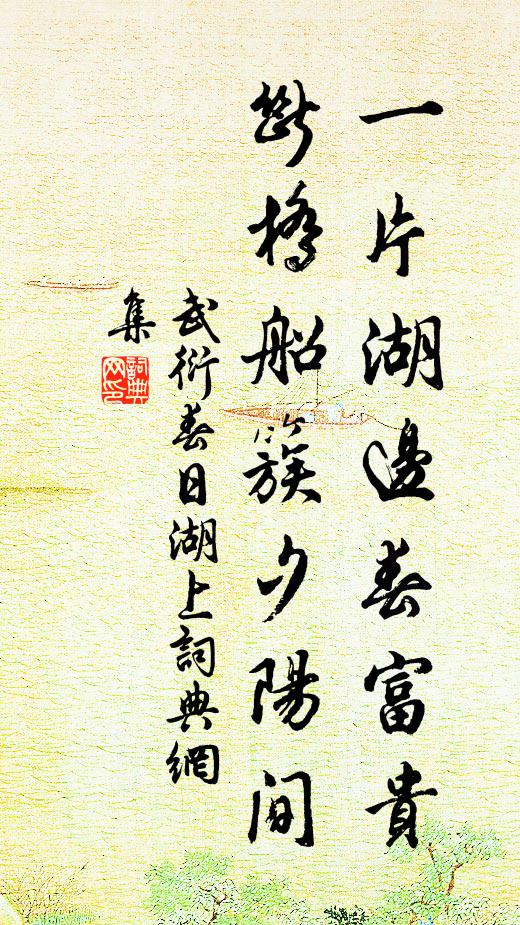 一片湖邊春富貴
斷橋船簇夕陽間
武衍春日湖上詞典網
集
詞典
网印